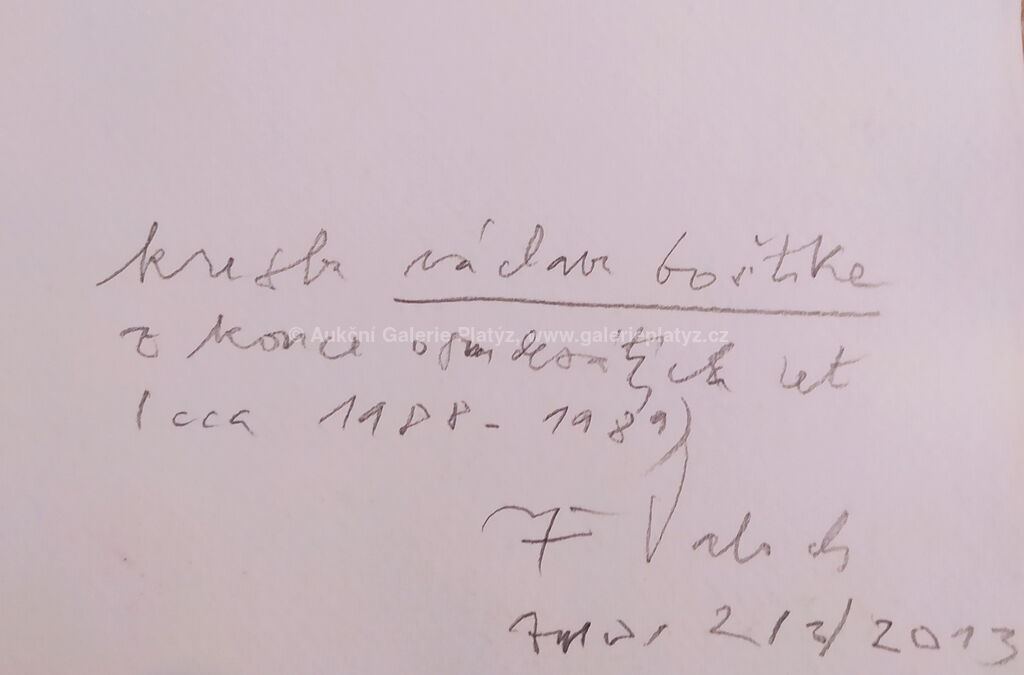 kresba václava boštíka
z konce osmdesátých let
© Aukční Galerie Platýz, www.galerieplatyz.cz
(cca 1988-1989)
J Valoch
2/3/2013